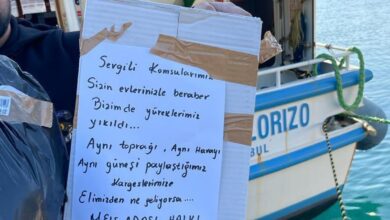 Sevgili Komşularımız
Sizin evlerinizle beraber
Bizimde yüreklerimiz
yıkıldı...
Aynı toprağı, Aynı Havayı
Aynı güneşi paylaştığımız
Kardeşlerimize
Elimizden ne geliyorsa....
HALKI
LORIZO
BUL